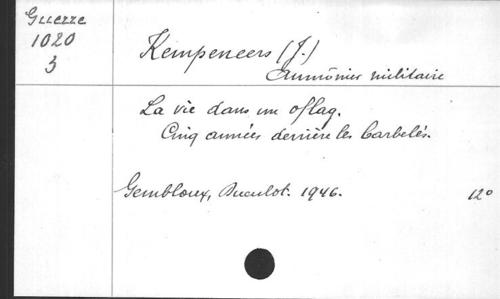 Guerre
1020
3
Kempeneers (J.)
Aumônier militaire
La vie dans un oflag.
Cinq années derrière les barbelés.
Gembloux, Duculot. 1946. 12°